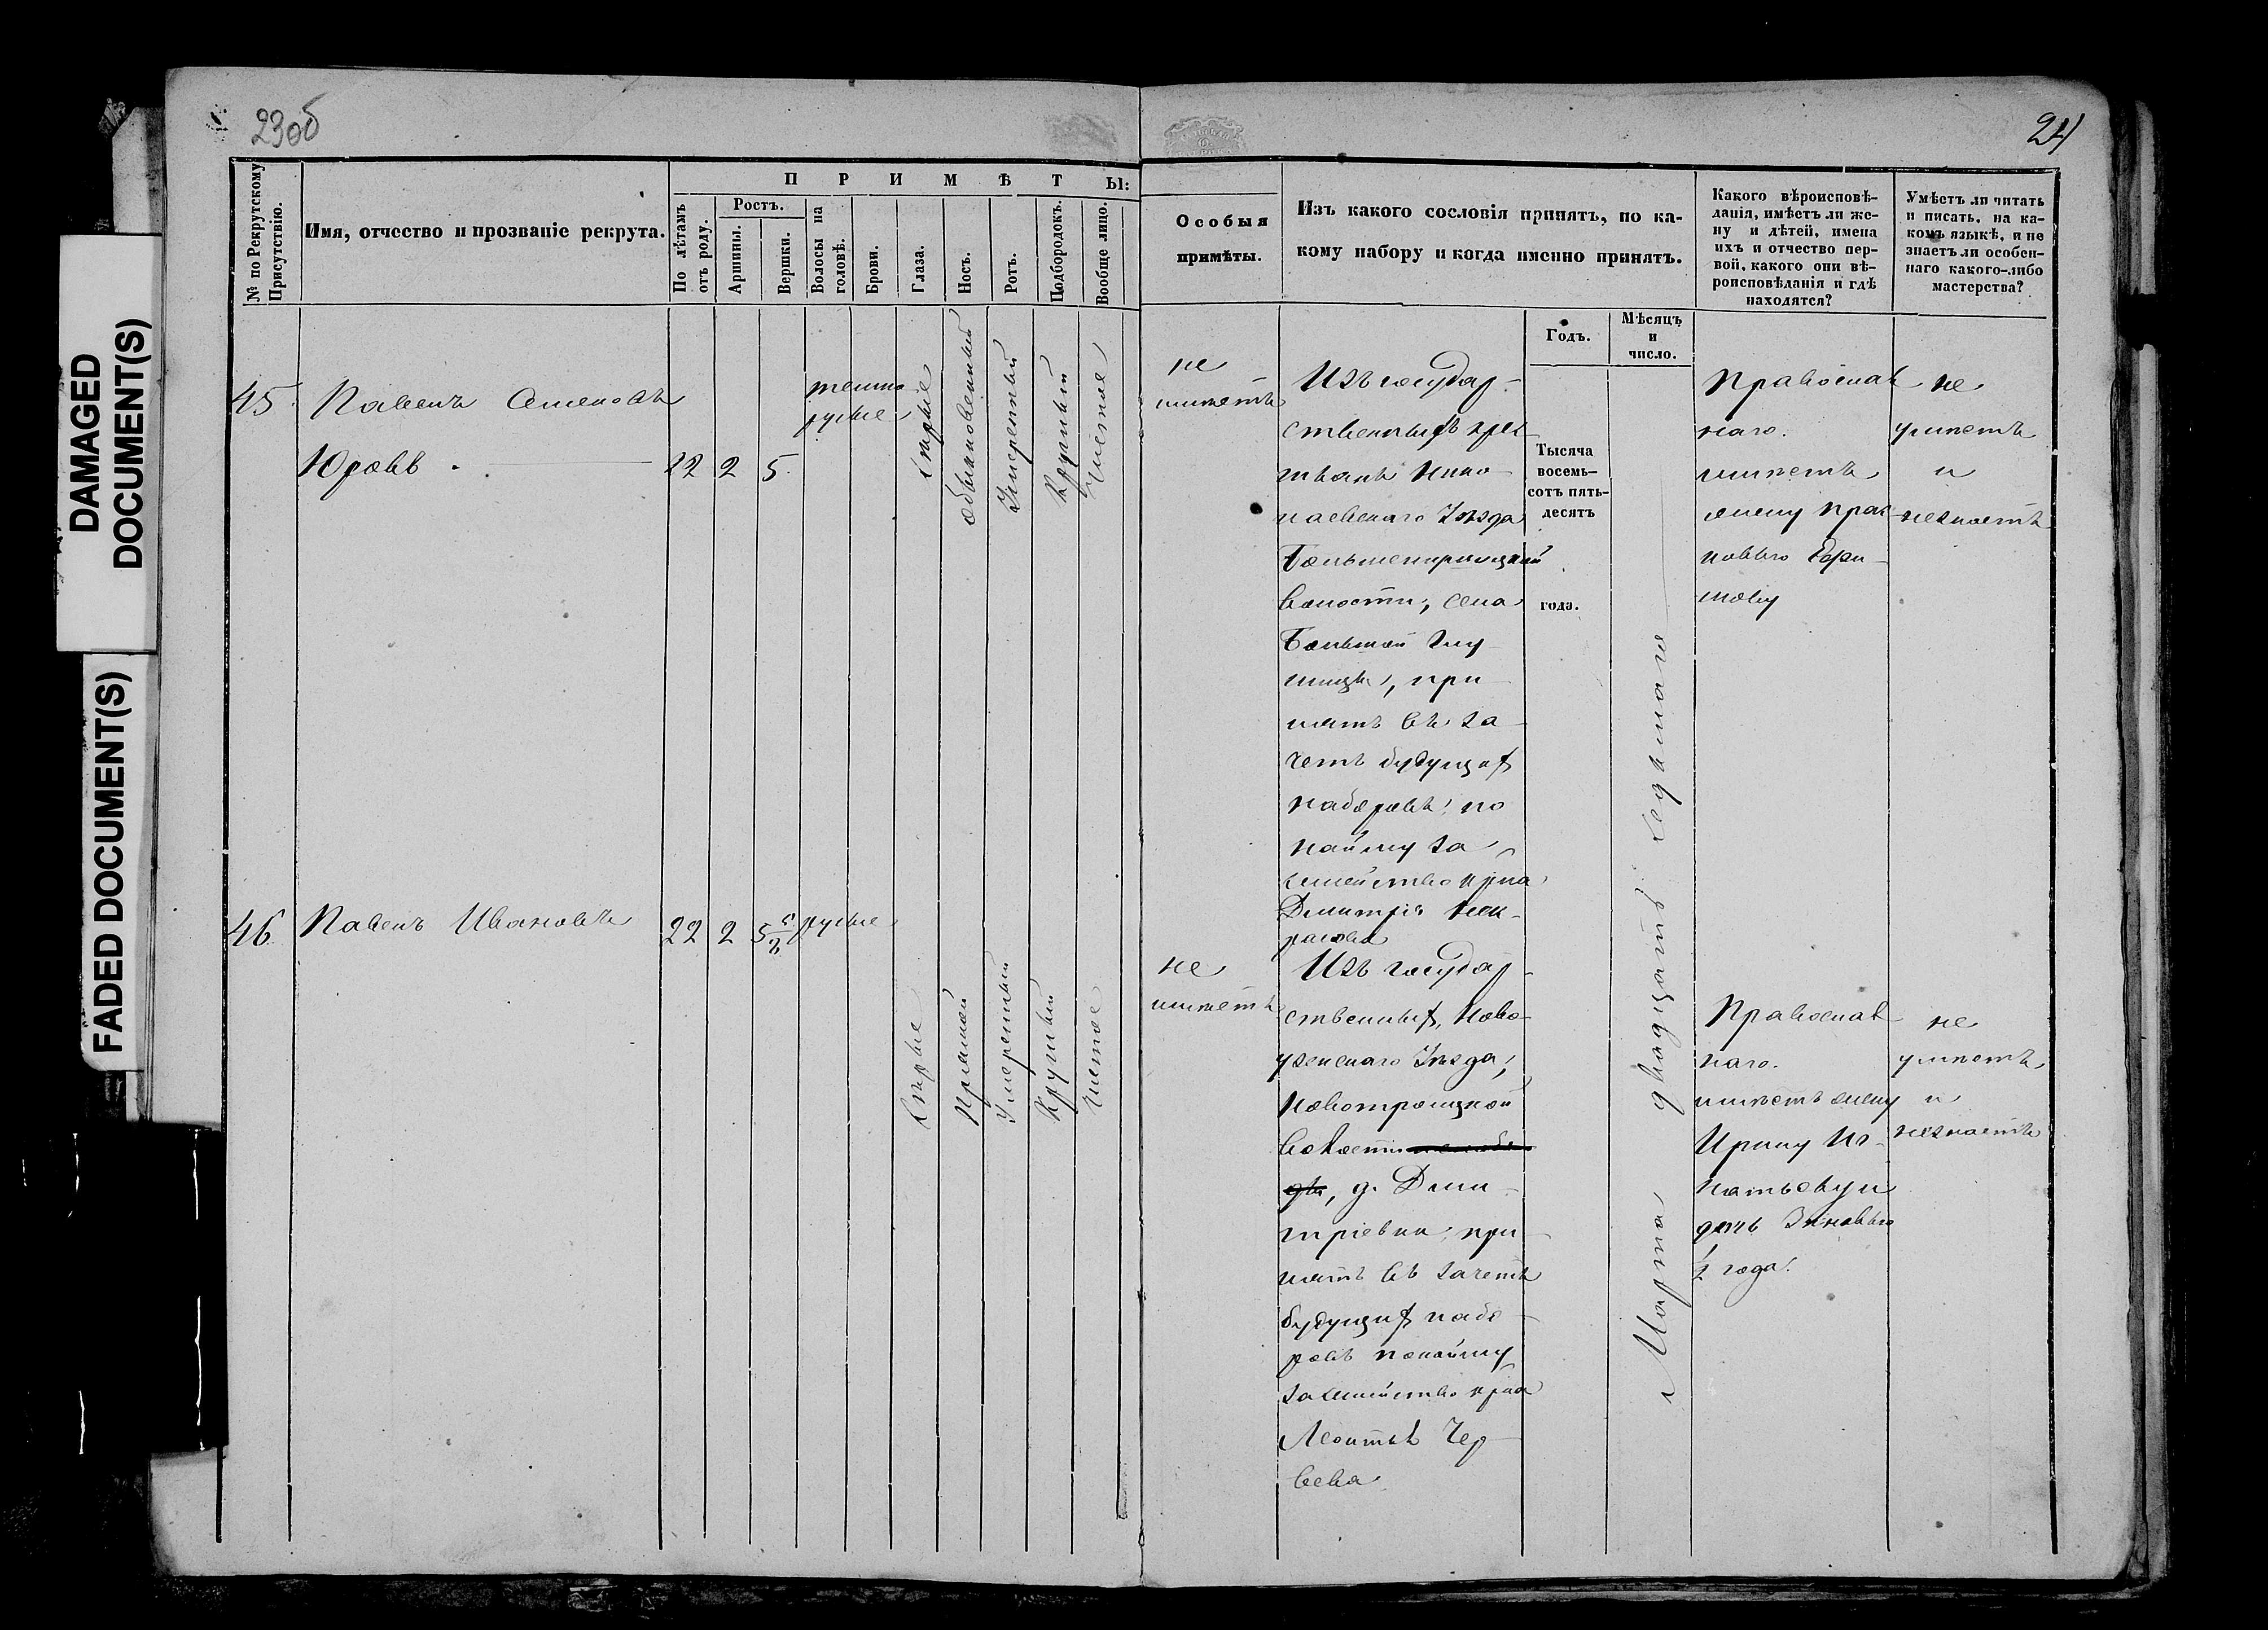 DAMAGED
DOCUMENT(S)
FADED DOCUMENT(S)
23об
24
№ по Рекрутскому
Присутствію.
Имя, отчество и прозваніе рекрута.
П Р И М Ѣ Т Ы:
По лѣтамъ
отъ роду.
Ростъ.
Аршины.
Вершки.
Волосы на
головѣ.
Брови.
Глаза.
Носъ.
Ротъ.
Подбородокъ.
Вообще лицо.
Особыя
примѣты.
Изъ какого сословія принятъ, по ка-
кому набору и когда именно принятъ.
Годъ.
Мѣсяцъ
и
число.
Какого вѣроисповѣ-
данія, имѣетъ ли же-
ну и дѣтей, имена
ихъ и отчество пер-
вой, какого они вѣ-
роисповѣданія и гдѣ
находятся?
Умѣетъ ли читать
и писать, на ка-
комъ языкѣ, и не
знаетъ ли особен-
наго какого-либо
мастерства?
45
Павелъ Семеновъ
Юровъ
22
2
5
темно
русые
сѣрые
обыкновенный
умѣренный
круглый
чистое
не
имѣетъ
Изъ государ-
ственныхъ крес
тьянъ Нико-
лаевскаго Уѣзда
волости, села
Большой Глу-
шицы, при-
нятъ въ за-
четъ будущихъ
наборовъ, по
найму за
семейство кр-на
Дмитрія Нек-
расова
Тысяча
восемь-
сотъ пять-
десятъ
года.
Марта двадцать седьмаго
Православ
наго.
имѣетъ
жену Прас
ковью Ефи-
мову
не
умѣетъ
и
незнаетъ
46
Павелъ Ивановъ
22
2
5
русые
сѣрые
прямой
умѣренный
круглый
чистое
не
имѣетъ
Изъ государ-
ственныхъ, Ново-
узенскаго Уѣзда,
Новотроицкой
волости
, д. Дми-
тріевки, при-
нятъ въ зачетъ
будущихъ набо-
ровъ по найму
за семейство кр-на
Леонтья Чер-
вева
Православ
наго.
имѣетъ жену
Ирину Иг-
натьеву и
дочь Зиновью
½ года.
не
умѣетъ
и
незнаетъ